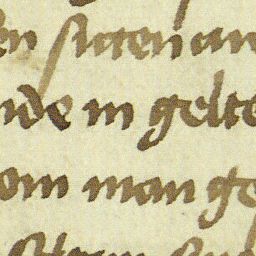 en sitten un
nde in gelte
om man ge